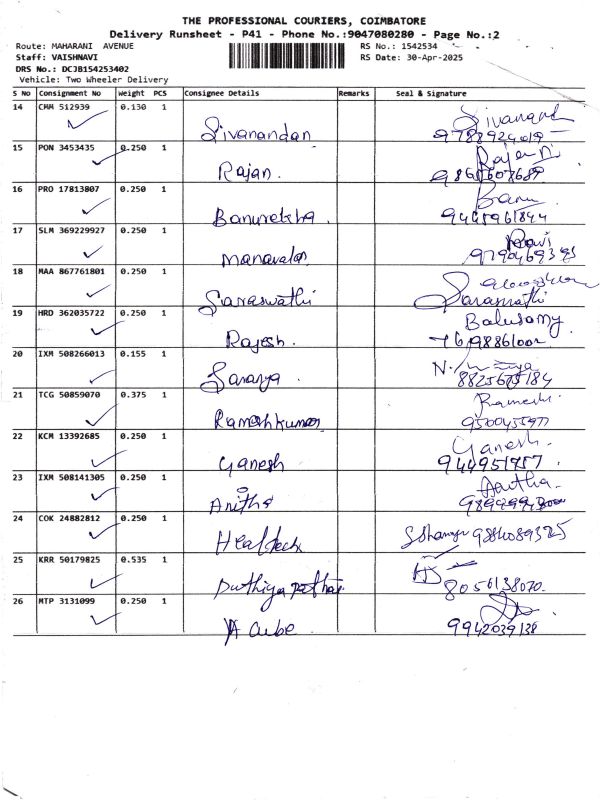 THE PROFESSIONAL COURIERS, COIMBATORE
Delivery Runsheet - P41 - Phone No.:9047080280 - Page No.:2
Route: MAHARANI AVENUE
Staff: VAISHNAVI
DRS No.: DCJB154253402
Vehicle: Two Wheeler Delivery
RS No.: 1542534
RS Date: 30-Apr-2025
S No Consignment No Weight PCS Consignee Details Remarks Seal & Signature
14 CMM 512939 0.130 1
Sivanandan Sivanand
15 PON 3453435 0.250 1
Rajan.
16 PRO 17813807 0.250 1
Banurekha Banu
17 SLM 369229927 0.250 1
Manavalan Ravi
18 MAA 867761801 0.250 1
Saraswathi Saraswathi
19 HRD 362035722 0.250 1 Balusamy
Rajesh.
20 IXM 508266013 0.155 1
Saranya.
21 TCG 50859070 0.375 1 Ramesh.
Rameshkumar 9500455977
22 KCM 13392685 0.250 1 Ganesh.
Ganesh 944951757
23 IXM 508141305 0.250 1
Anitha
24 COK 24882812 0.250 1
Healtech
25 KRR 50179825 0.535 1
8056138070.
26 MTP 3131099 0.250 1
A Cube 9942039138